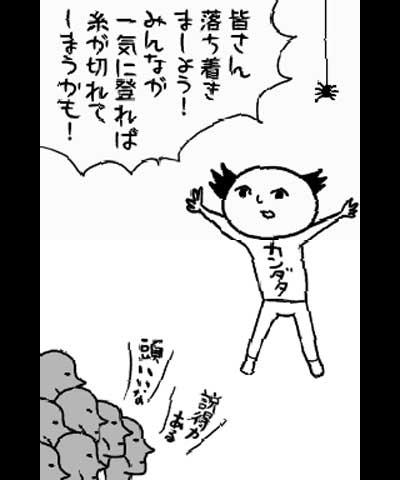 皆さん
落ち着き
ましょう！
みんなが
一気に登れば
糸が切れて
しまうかも！
カンダタ
頭いいな
説得力
ある